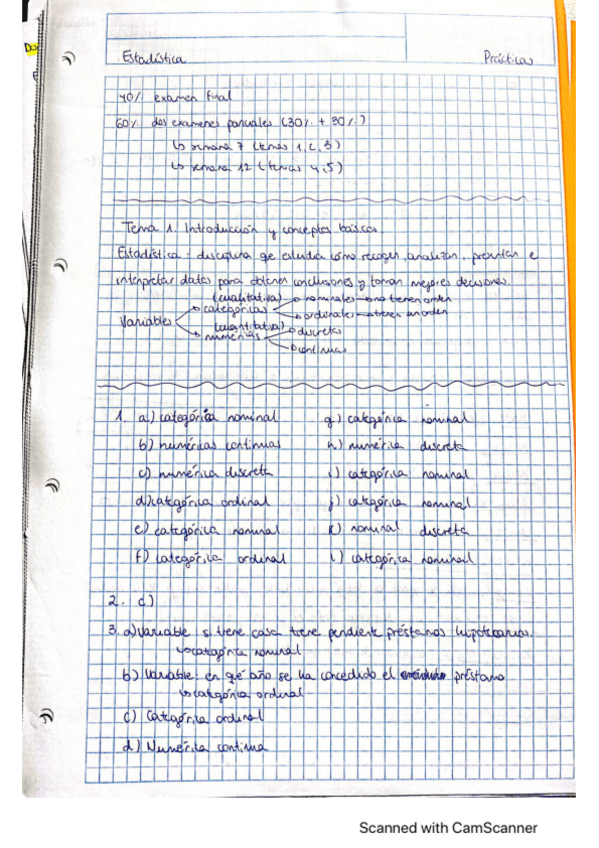 Do
Estadística Prácticas
40% examen final
60% dos examenes parciales (30% + 30%)
↳ semana 7 (temas 1, 2, 3)
↳ semana 12 (temas 4, 5)
Tema 1. Introducción y conceptos básicos.
Estadística: disciplina que estudia cómo recoger, analizan, presentan e
interpretar datos para obtener conclusiones y toman mejores decisiones.
(cualitativa) nominales → no tienen orden
categóricas ordinales → tienen un orden
Variables (cuantitativa) discretas
numéricas
continuas
1. a) categórica nominal g) categórica nominal
b) numéricas continuas h) numérica discreta
c) numérica discreta i) categórica nominal
d) categórica ordinal j) categórica nominal
e) categórica nominal k) nominal discreta
f) categórica ordinal l) categórica nominal
2. c)
3. a) Variable si tiene casa tiene pendiente préstamos hipotecarios.
↳ categórica nominal
b) Variable: en qué año se ha concedido el préstamo
↳ categórica ordinal
c) Categórica ordinal
d) Numérica continua
Scanned with CamScanner